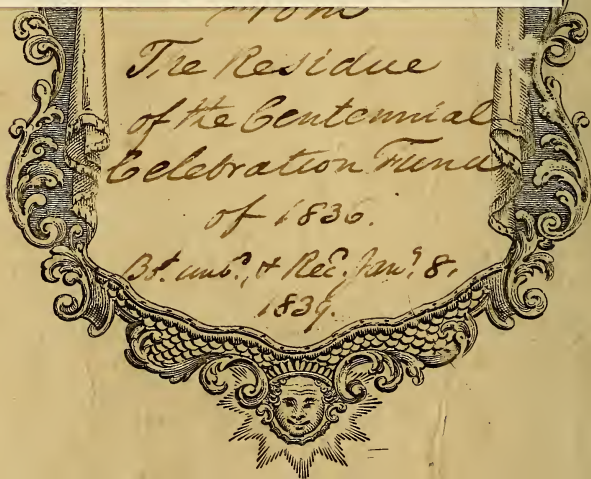 From
The Residue
of the Centennial
Celebration Fund
of 1836.
Bt. unb?, & Rec. Jany. 8,
1839.